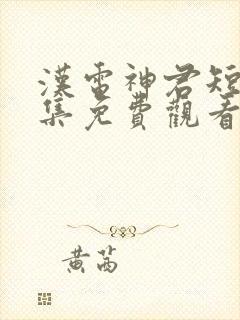 漢雷神君短
集免費觀看
黄茜